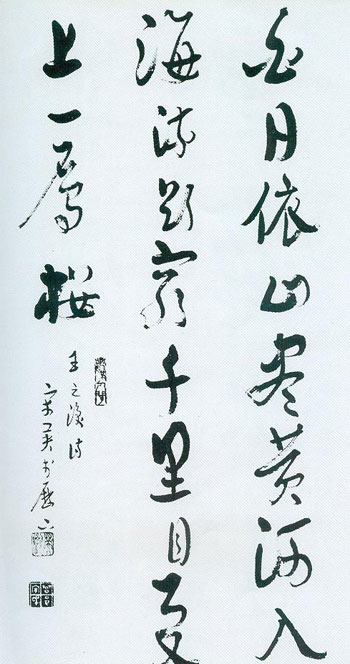 白日依山尽黄河入
海流欲穷千里目更
上一层楼
王之涣诗
书历下